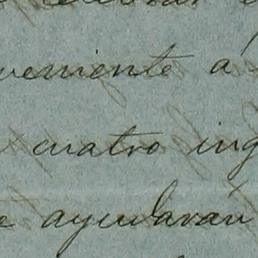 veniente á
cuatro ing
e ayudaran